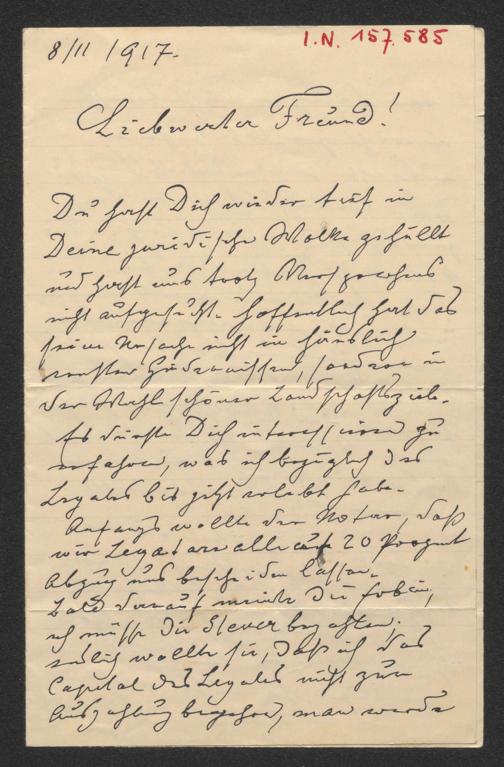 8/11 1917.
I.N. 157.585
Liebwerter Freund!
Du hast Dich wieder tief in
Deine juridische Wolke gehüllt
und hast uns trotz Versprechens
nicht aufgesucht. Hoffentlich hat das
seine Ursache nicht in häuslich
ernsten Hindernissen, sondern in
der Wahl schöner Landschaftsziele.
Es dürfte Dich interessieren zu
erfahren, was ich bezüglich des
Legates bis jetzt erlebt habe.
Anfangs wollte der Notar, daß
wir Legatare alle auf 20 Prozent
Abzug uns bescheiden lassen.
Bald darauf meinte die Erbin,
ich müsse die Steuer bezahlen.
wollte sie, daß ich das
Capital des Legates nicht zur
Auszahlung begehre, man werde